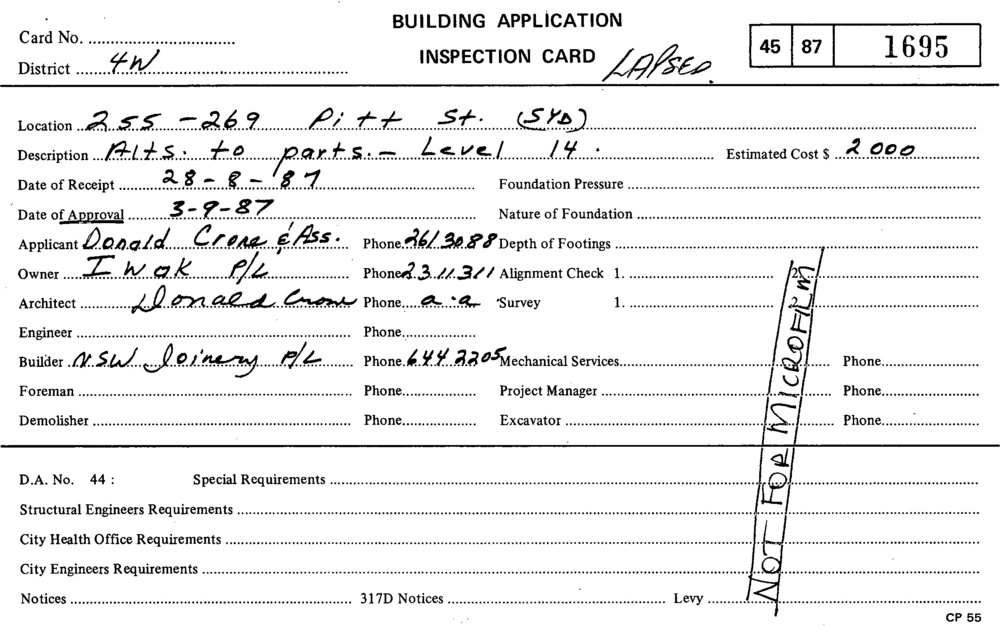 BUILDING APPLICATION
INSPECTION CARD LAPSED.
Card No.
District 4W
45 87 1695
Location 255-269 Pitt St. (SYD)
Description Alts. to parts. - Level 14. Estimated Cost $ 2000
Date of Receipt 28-8-'87 Foundation Pressure
Date of Approval 3-9-87 Nature of Foundation
Applicant Donald Crone & Ass. Phone. 2613088 Depth of Footings
Owner I wak P/L Phone 2311311 Alignment Check 1. 2.
Architect Donald Crone Phone a.a Survey 1. 2.
Engineer Phone
Builder NSW Joinery P/L Phone 644 2205 Mechanical Services Phone
Foreman Phone Project Manager Phone
Demolisher Phone Excavator Phone
NOT FOR MICROFILM
D.A. No. 44 : Special Requirements
Structural Engineers Requirements
City Health Office Requirements
City Engineers Requirements
Notices 317D Notices Levy
CP 55